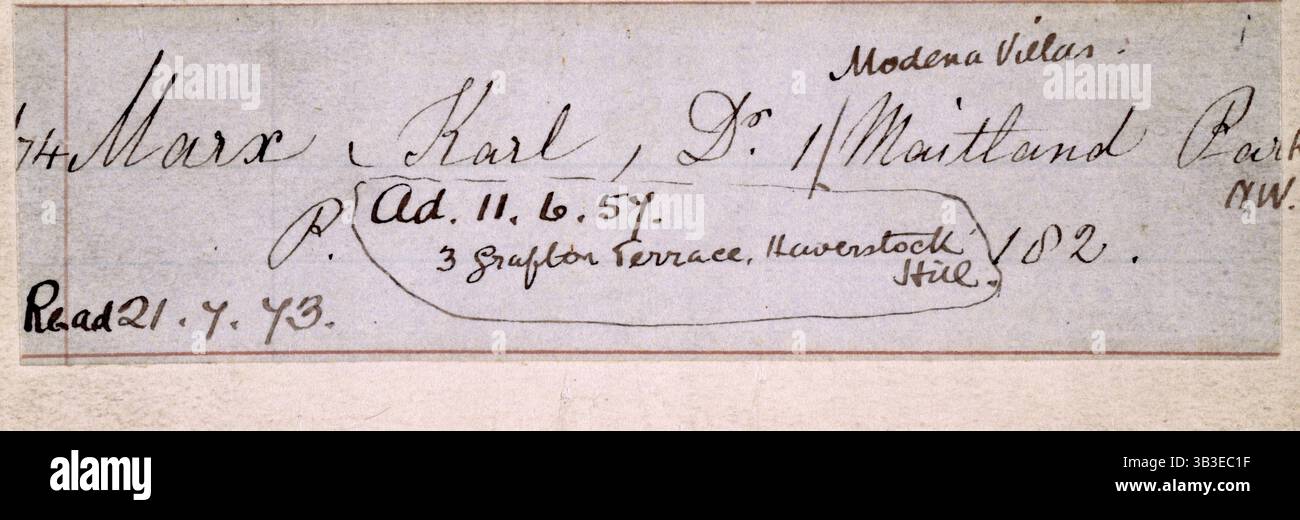 Modena Villas.
74 Marx, Karl, Dr. 1/ Maitland Park
N.W.
P. Ad. 11. 6. 57. 182.
3 Grafton Terrace, Haverstock
Hill.
Read 21. 7. 73.
alamy
Image ID: 3B3EC1F
www.alamy.com